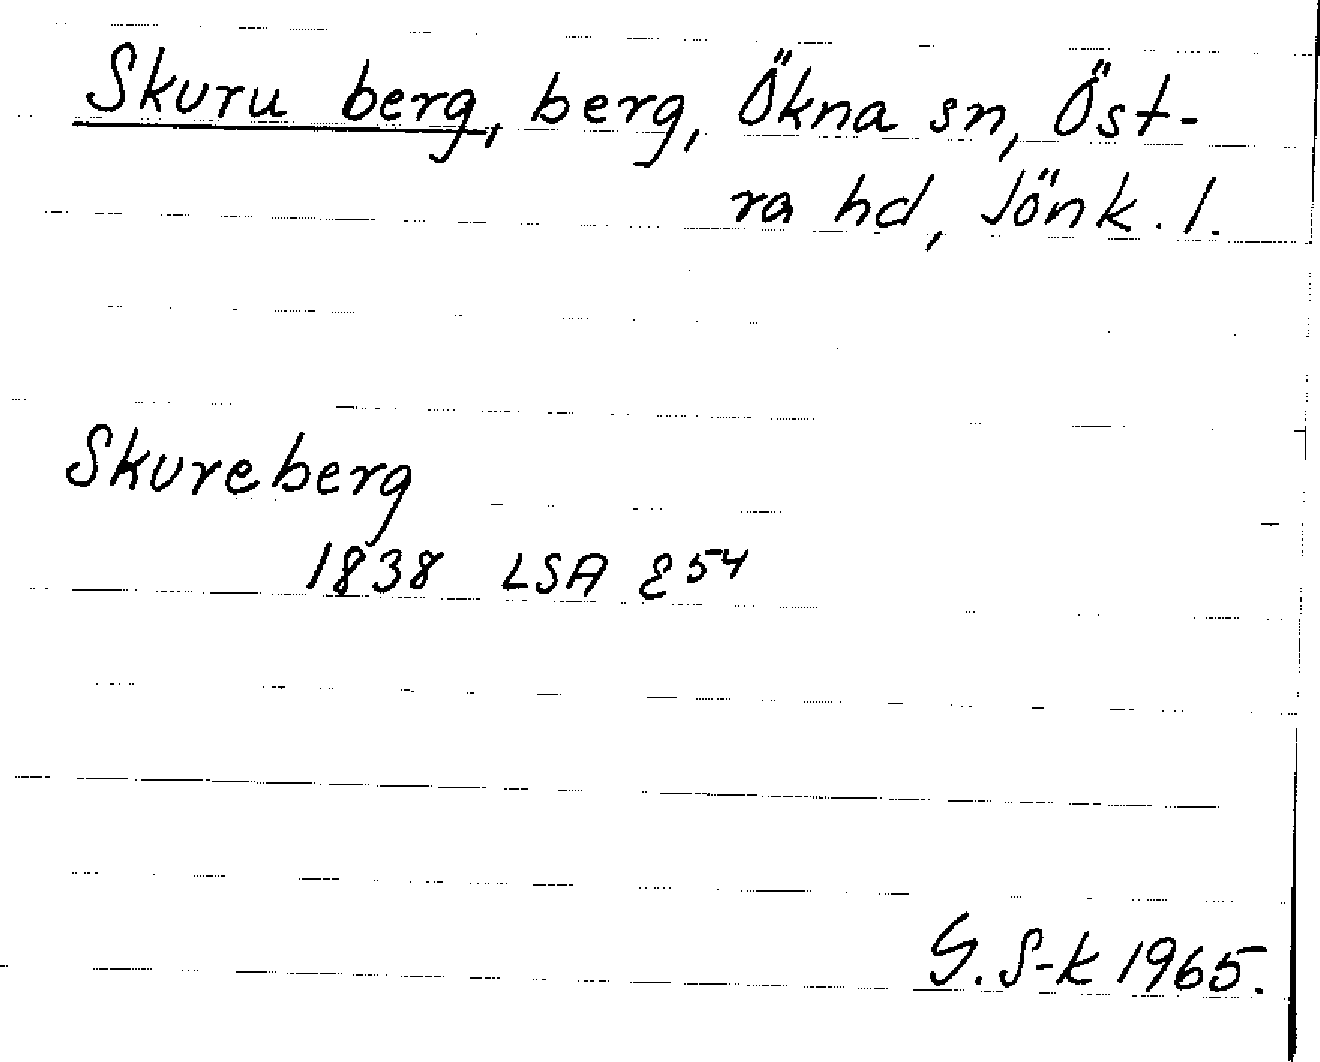 Skuru berg, berg, Ökna sn, Öst-
ra hd, Jönk. l.
Skureberg
1838 LSA E54
G. S-k 1965.